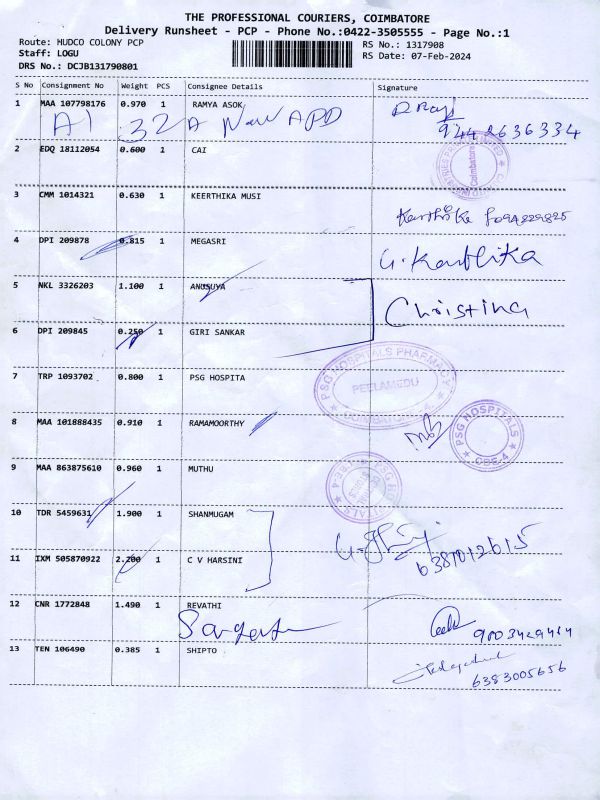 THE PROFESSIONAL COURIERS, COIMBATORE
Delivery Runsheet - PCP - Phone No.:0422-3505555 - Page No.:1
Route: HUDCO COLONY PCP
RS No.: 1317908
Staff: LOGU
RS Date: 07-Feb-2024
DRS No.: DCJB131790801
S No Consignment No Weight PCS Consignee Details Signature
1 MAA 107798176 0.970 1 RAMYA ASOK
A1 32 A New APD
2 EDQ 18112054 0.600 1 CAI
Coimbatore
3 CMM 1014321 0.630 1 KEERTHIKA MUSI
4 DPI 209878 0.815 1 MEGASRI
G. Karthika
5 NKL 3326203 1.100 1 ANUSUYA
Christina
6 DPI 209845 0.250 1 GIRI SANKAR
7 TRP 1093702 0.800 1 PSG HOSPITA
PSG HOSPITALS PHARMACY
PEELAMEDU
8 MAA 101888435 0.910 1 RAMAMOORTHY
PSG HOSPITALS
CBE-4
9 MAA 863875610 0.960 1 MUTHU
10 TDR 5459631 1.900 1 SHANMUGAM
11 IXM 505870922 2.200 1 C V HARSINI
6387012615
12 CNR 1772848 1.490 1 REVATHI
13 TEN 106490 0.385 1 SHIPTO
6383005656